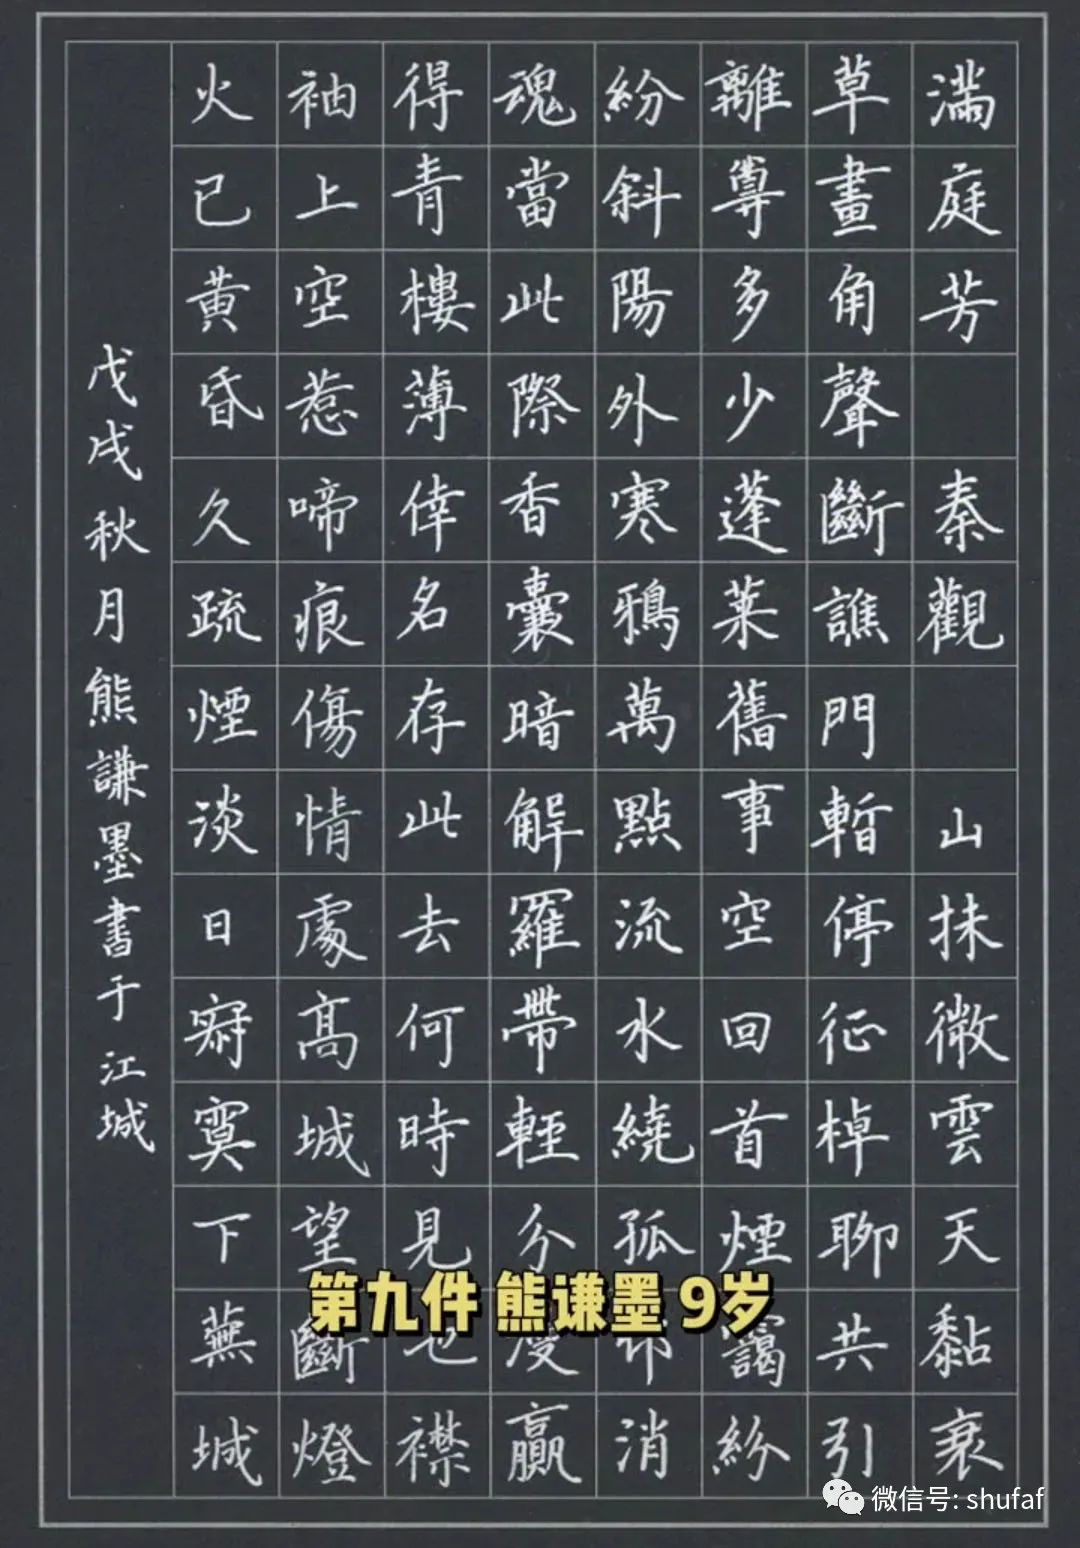 滿庭芳 秦觀 山抹微雲天黏衰
草畫角聲斷譙門暫停征棹聊共引
離尊多少蓬萊舊事空回首煙靄紛
紛斜陽外寒鴉萬點流水繞孤消
魂當此際香囊暗解羅帶輕分贏
得青樓薄倖名存此去何時見也襟
袖上空惹啼痕傷情處高城望斷燈
火已黃昏久疏煙淡日寂寞下蕪城
戊戌秋月熊謙墨書于江城
第九件 熊谦墨 9岁
微信号: shufaf